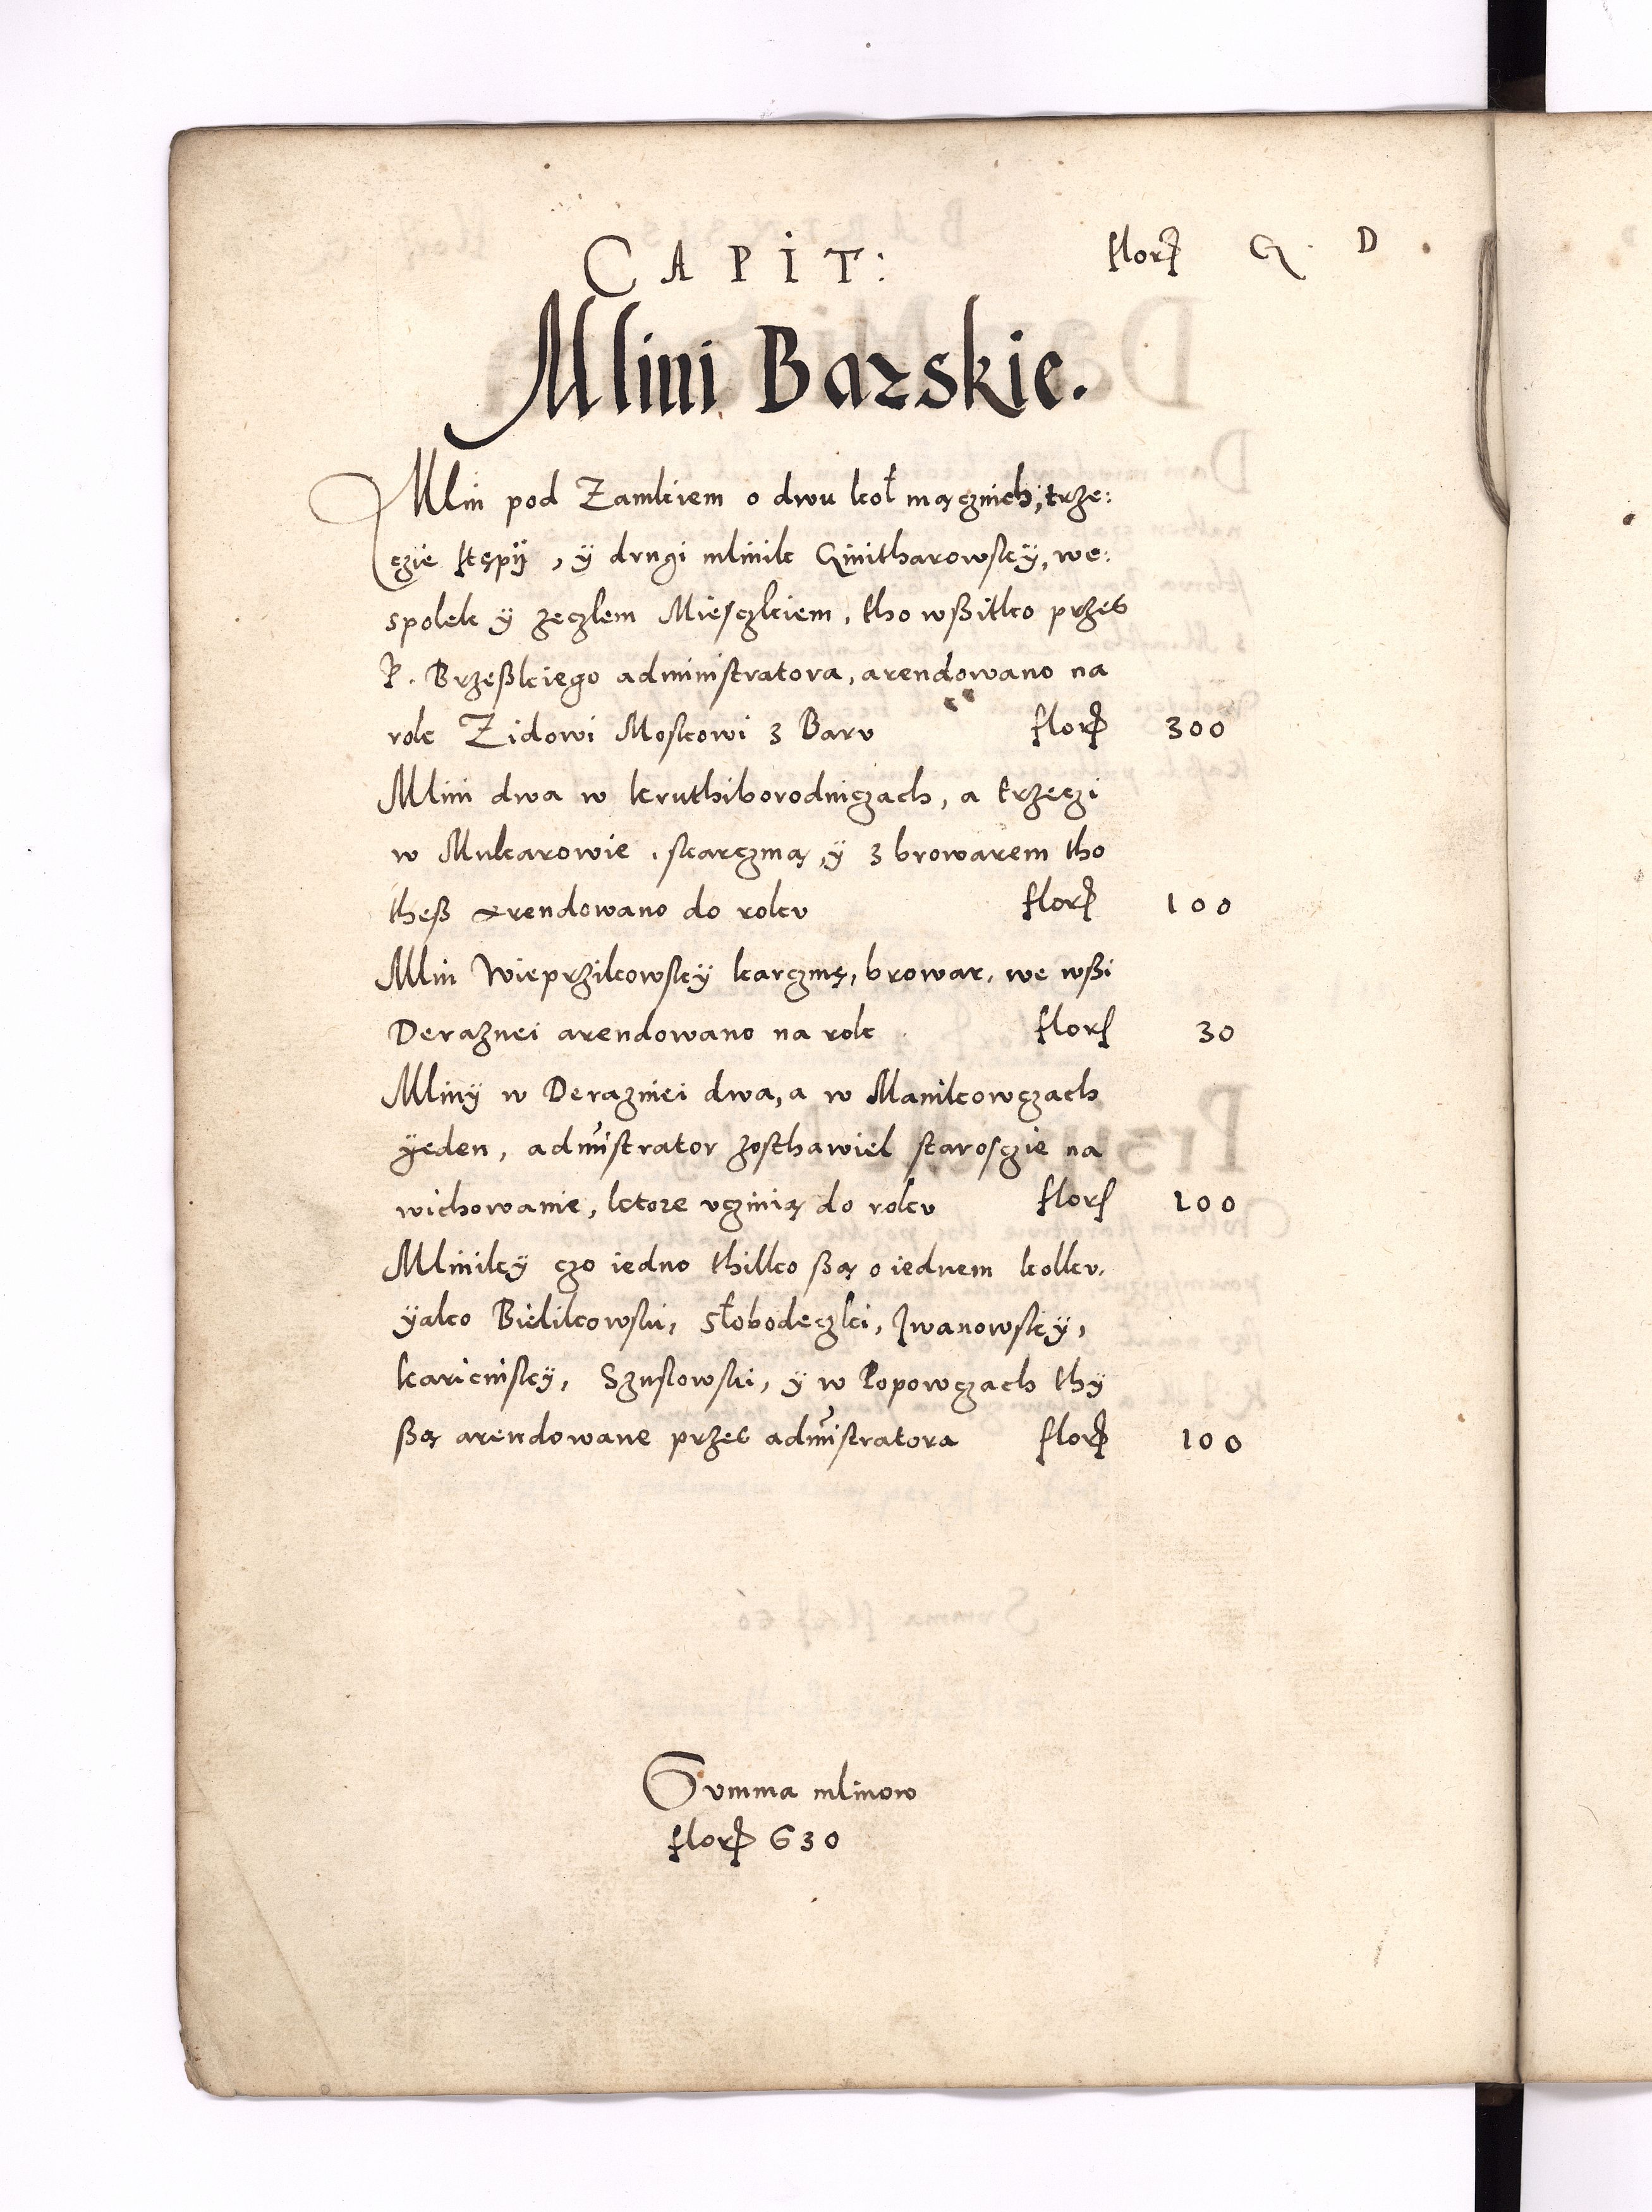 CAPIT: flor G. D
Mlini Barskie.
Mlin pod Zamkiem o dwu koł mącznich, trze:
czie stępÿ, ÿ drugi mlinik Gmitharowskÿ, we:
spolek ÿ zeczlem Miesczkiem, tho wßitko przes
P. Brzeßkiego administratora, arendowano na
rok Zidowi Moskowi z Baru flor 300
Mlini dwa w kruthiborodniczach, a trzeczi
w Mukarowie, skarczmą, ÿ z browarem tho
theß arendowano do roku flor 100
Mlin Wieprzikowskÿ karczmę, browar, we wßi
Deraznei arendowano na rok flor 30
Mlinÿ w Derazniei dwa, a w Manikowczach
ÿeden, admistrator zosthawiel starosczie na
wichowanie, ktore vczinią do roku flor 100
Mlinikÿ czo iedno thilko ßą o iednem kolku,
ÿako Bielikowski, Słobodeczki, Iwanowskÿ,
karicinskÿ, Szuslowski, ÿ w Popowczach thÿ
ßą arendowane przes admistratora flor 100
Summa mlinow
flor 630